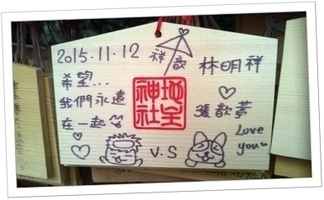 2015.11.12
祥歆
林明祥
希望...
我們永遠
在一起
地主
神社
張歆夢
Love
you
V.S